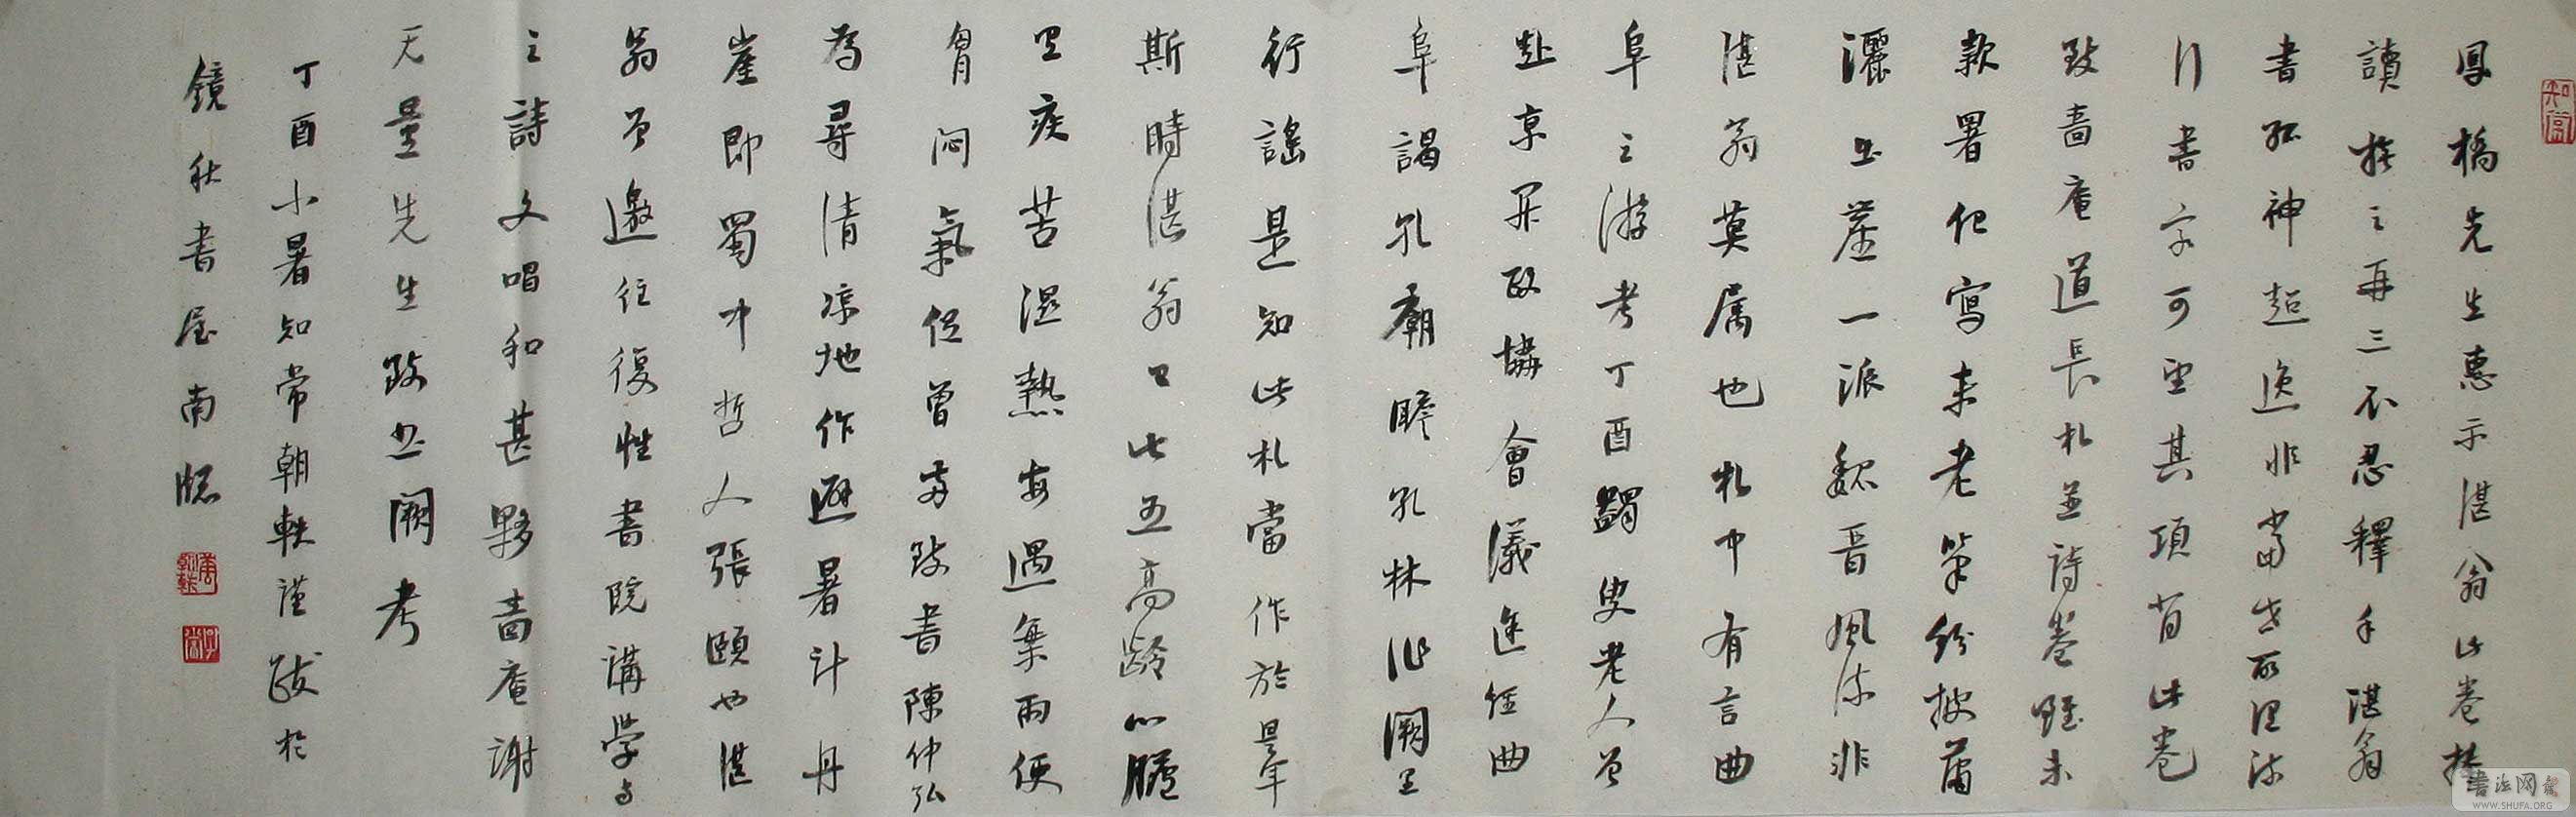 知常
鳳橋先生惠示湛翁此卷捧
讀旋之再三不忍釋手湛翁
書孤神超逸非當世所習法
行書亦可望其項背此卷
致嗇庵道長札並詩卷雖未
款署但寫來老筆紛披蕭
灑出塵一派魏晉風流非
湛翁莫屬也札中有言曲
阜之游考丁酉蠲叟老人曾
赴京開政協會議途經曲
阜謁孔廟瞻孔林沂闕里
行謠是知此札當作於是年
斯時湛翁已七五高齡心臟
宿疾苦濕熱每遇集雨便
胃悶氣促曾多致書陳仲弘
為尋清涼地作避暑計丹
崖即蜀中哲人張頤也湛
翁曾邀任復性書院講學與
之詩文唱和甚夥嗇庵謝
无量先生致此闕考
丁酉小暑知常朝軼謹跋於
鏡秋書屋南牕
書法网
WWW.SHUFA.ORG